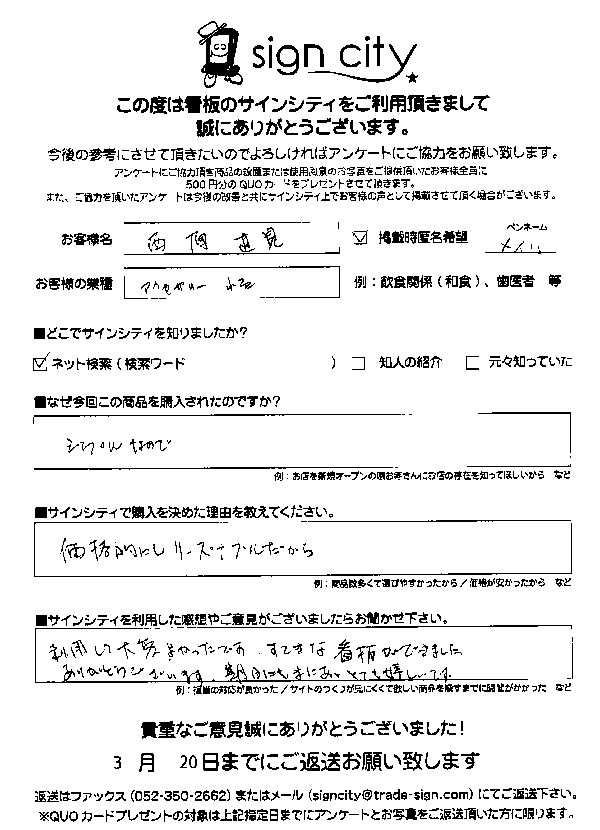 sign city
この度は看板のサインシティをご利用頂きまして
誠にありがとうございます。
今後の参考にさせて頂きたいのでよろしければアンケートにご協力をお願い致します。
アンケートにご協力頂き商品の設置または使用風景のお写真をご提供頂いたお客様全員に
500円分のQUOカードをプレゼントさせて頂きます。
また、ご協力を頂いたアンケートは今後の改善と共にサインシティ上でお客様の声として掲載させて頂く場合がございます。
お客様名 西 直 掲載時匿名希望 ペンネーム
お客様の業種 アクセサリー 小売 例：飲食関係（和食）、歯医者 等
■どこでサインシティを知りましたか？
ネット検索（検索ワード ） 知人の紹介 元々知っていた
■なぜ今回この商品を購入されたのですか？
シンプルなので
例：お店を新規オープンの際お客さんにお店の存在を知ってほしいから など
■サインシティで購入を決めた理由を教えてください。
価格的にもリーズナブルだから
例：商品数多くて選びやすかったから／価格が安かったから など
■サインシティを利用した感想やご意見がございましたらお聞かせ下さい。
利用して大変良かったです。すてきな看板ができました
ありがとうございます。期日にもまにあいとても嬉しいです。
例：担当の対応が良かった／サイトのつくりが見にくくて欲しい商品を探すまでに時間がかかった など
貴重なご意見誠にありがとうございました！
3 月 20日までにご返送お願い致します
返送はファックス（052-350-2662）またはメール（signcity@trade-sign.com）にてご返送下さい。
※QUOカードプレゼントの対象は上記指定日までにアンケートとお写真をご返送頂いた方に限ります。